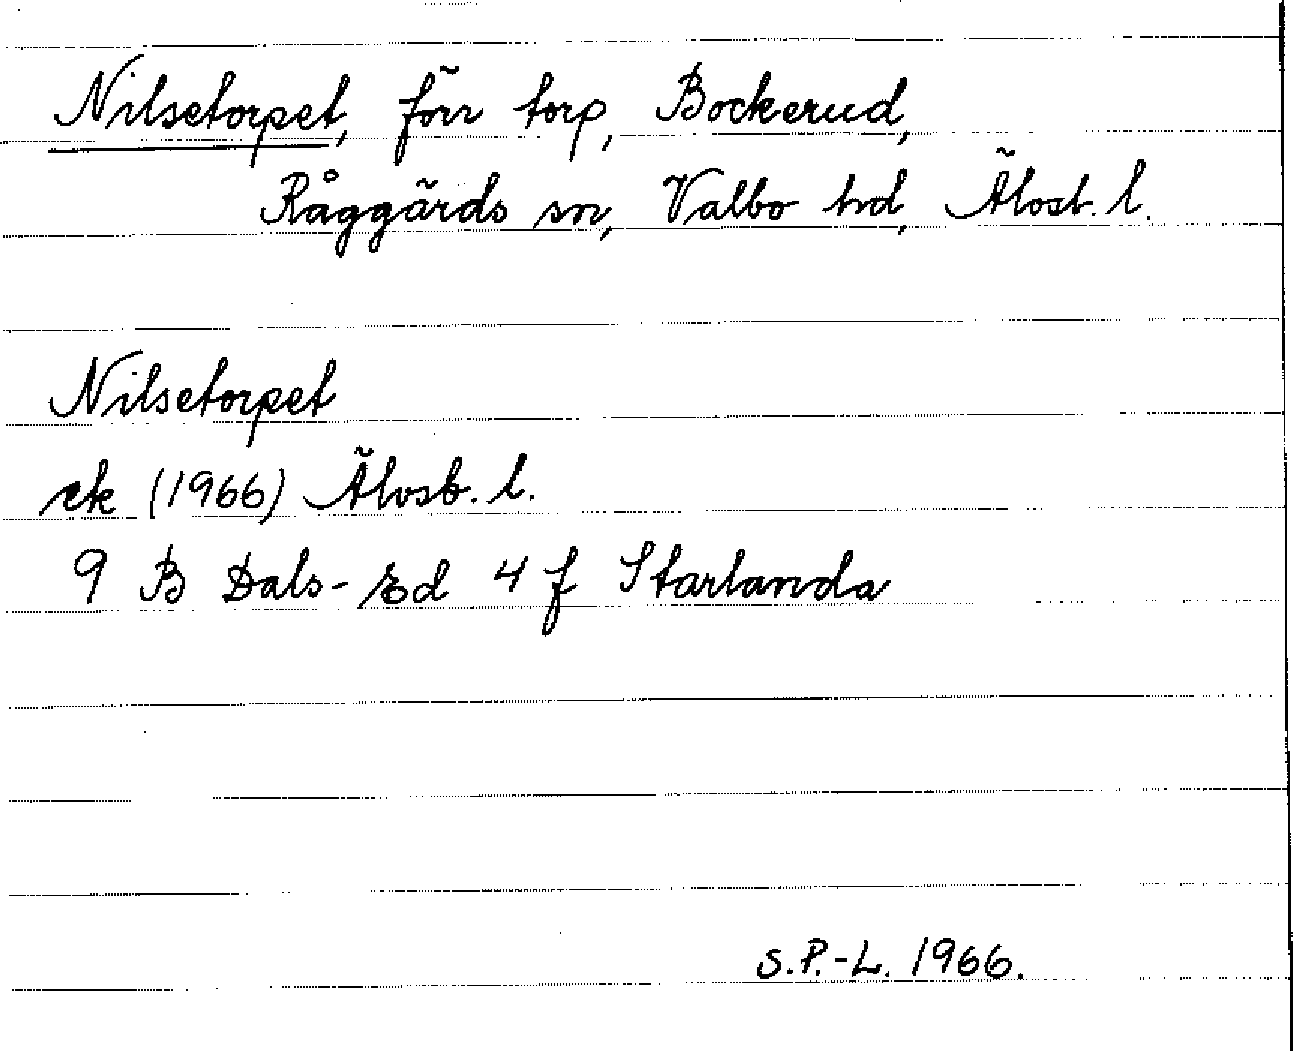 Nilsetorpet, förr torp, Bockerud,
Råggärds sn, Valbo hd, Älvsb. l.
Nilsetorpet
ek (1966) Älvsb. l.
9 B Dals-Ed 4 f Starlanda
S.P.-L. 1966.